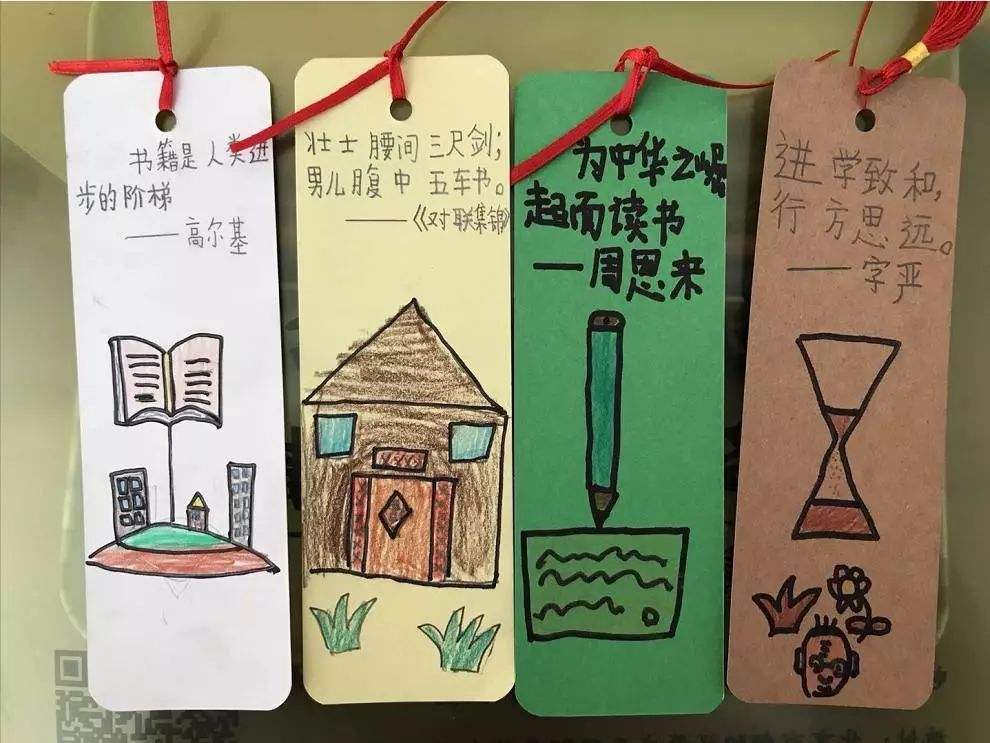 书籍是人类进
步的阶梯
——高尔基
壮士腰间三尺剑；
男儿腹中五车书。
——《对联集锦》
为中华之崛
起而读书
—周恩来
进学致和，
行方思远。
——字严